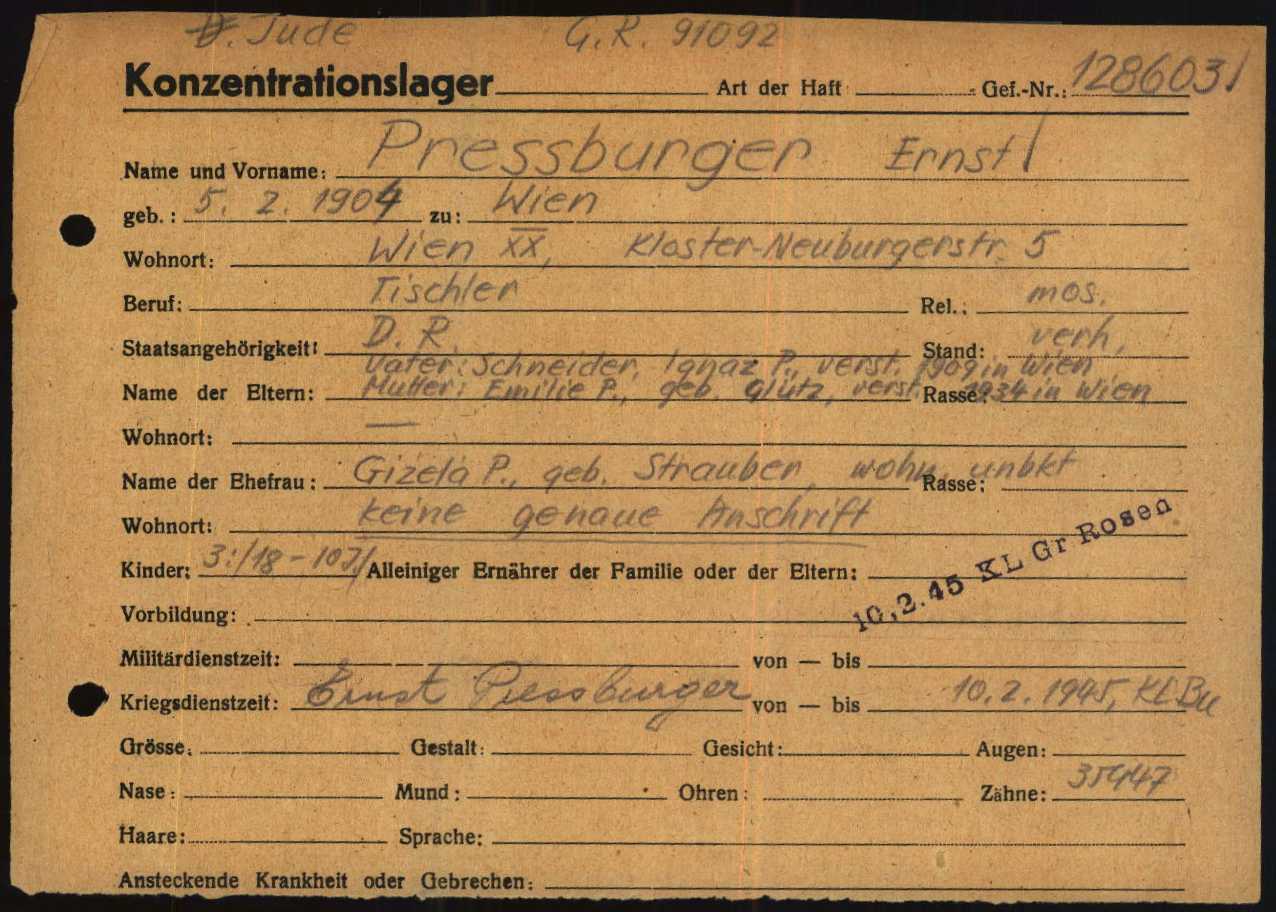 D. Jude G.R. 91092
Konzentrationslager Art der Haft Gef.-Nr.: 128603
Name und Vorname: Pressburger Ernst
geb.: 5. 2. 1904 zu: Wien
Wohnort: Wien XX, Kloster-Neuburgerstr. 5
Beruf: Tischler Rel.: mos.
Staatsangehörigkeit: D. R. Stand: verh.
Vater: Schneider, Ignaz P., verst. 1909 in Wien
Name der Eltern: Mutter: Emilie P., geb. Glütz, verst. Rasse: 1934 in Wien
Wohnort: —
Name der Ehefrau: Gizela P., geb. Strauber, wohn. unbkt Rasse:
Wohnort: keine genaue Anschrift
10.2.45 KL Gr Rosen
Kinder: 3:/18-10J./ Alleiniger Ernährer der Familie oder der Eltern:
Vorbildung:
Militärdienstzeit: von — bis
Kriegsdienstzeit: Ernst Pressburger von — bis 10.2.1945, KLBu
Grösse: Gestalt: Gesicht: Augen:
Nase: Mund: Ohren: Zähne: 35447
Haare: Sprache:
Ansteckende Krankheit oder Gebrechen: